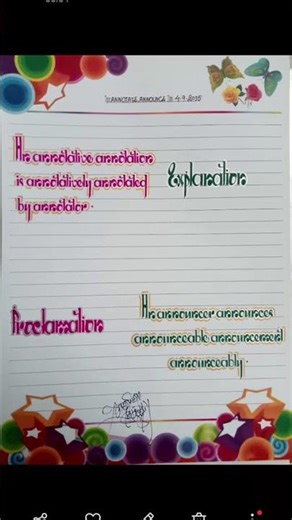 ANNOTATE ANNOUNCE 4.9.2015
An annotative annotation
is annotatively annotated
by annotator.
Explanation
Proclamation
An announcer announces
announceable announcement
announceably.